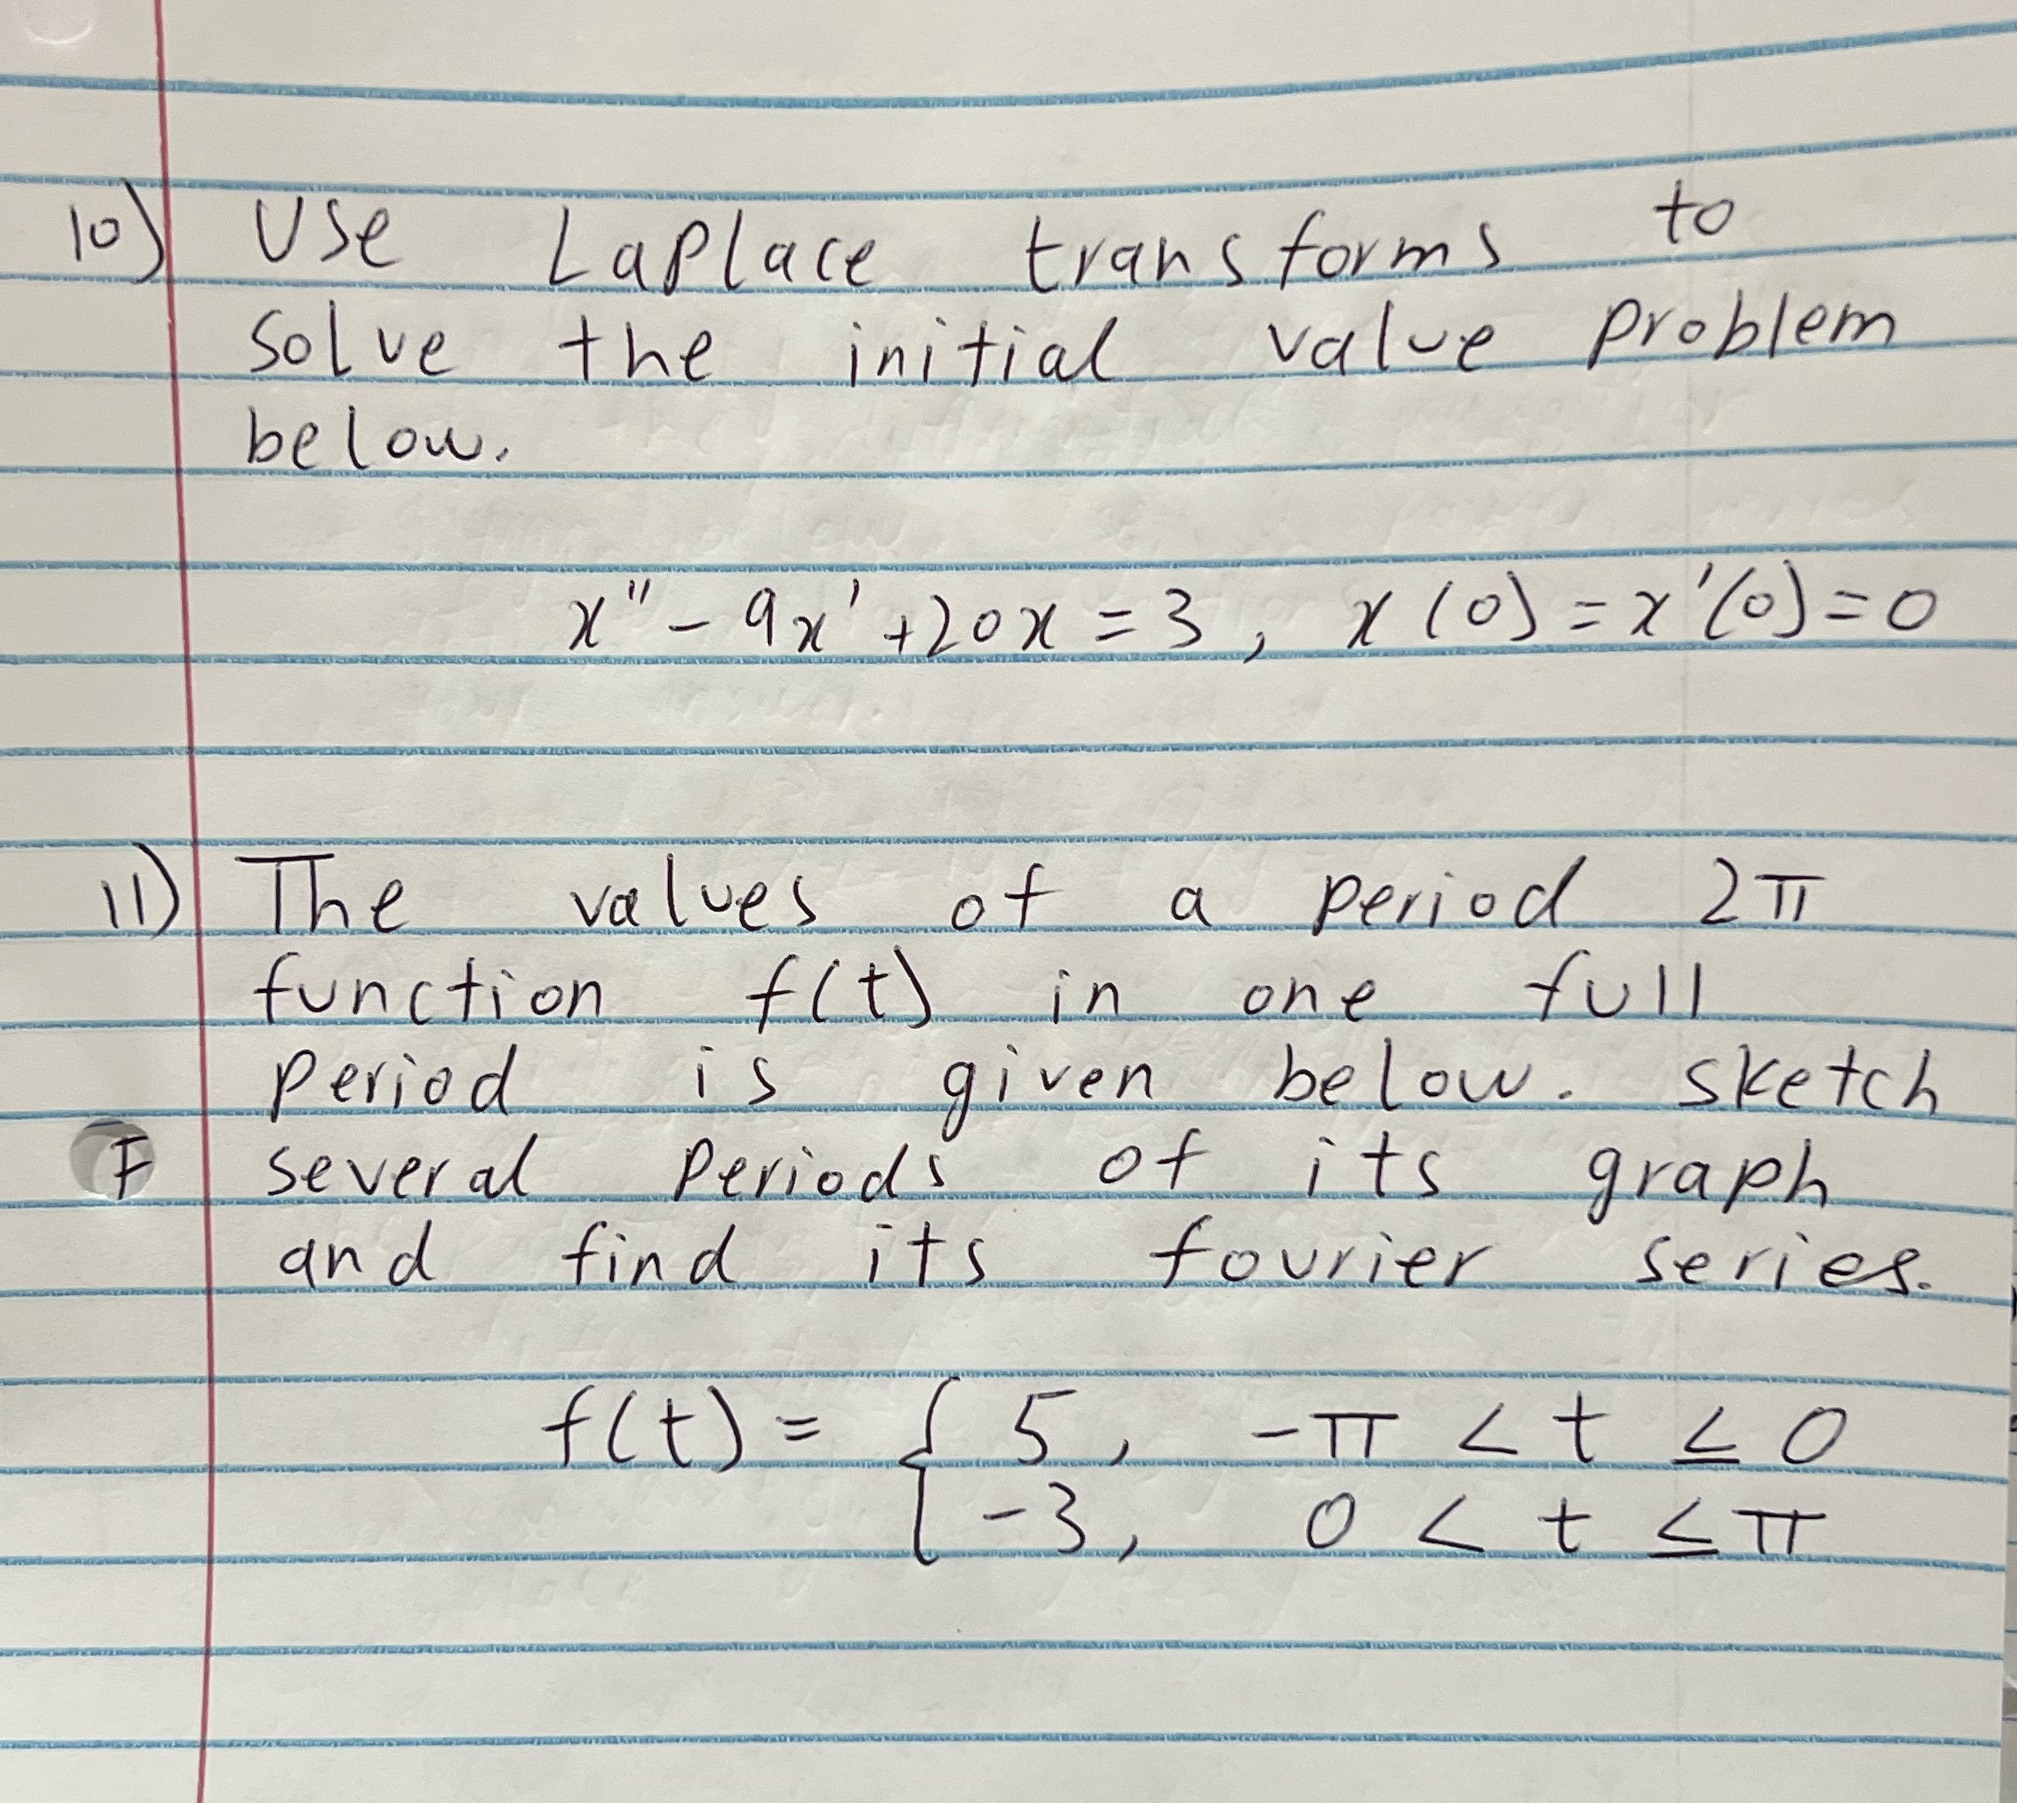 10) Use Laplace transforms to
solve the initial value problem
below.
x" - 9x' + 20x = 3, x(0) = x'(0) = 0
11) The values of a period 2π
function f(t) in one full
period is given below. sketch
F several periods of its graph
and find its fourier series.
f(t) = { 5, -π < t ≤ 0
-3, 0 < t ≤ π